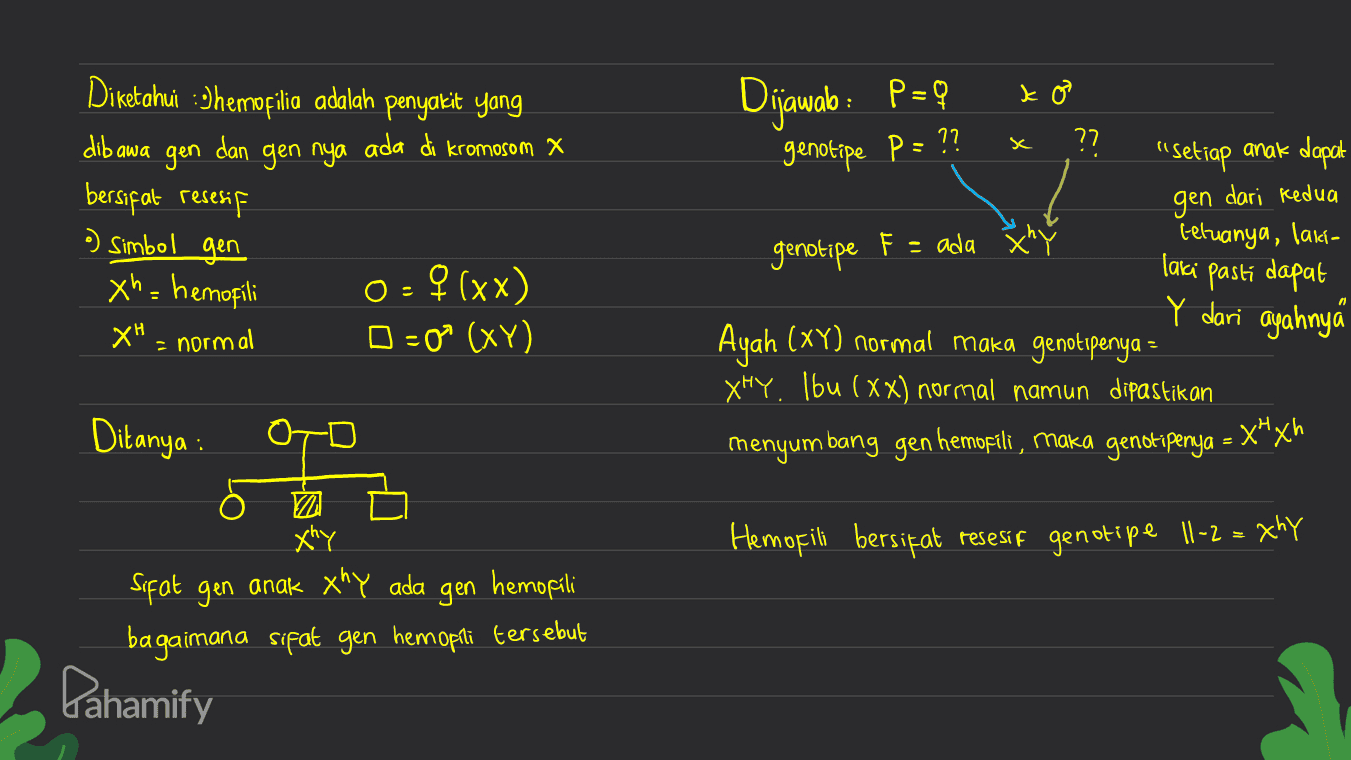 Diketahui :·) hemofilia adalah penyakit yang
dibawa gen dan gen nya ada di kromosom X
bersifat resesif
·) Simbol gen
Xʰ = hemofili
Xᴴ = normal
O = ♀ (XX)
□ = ♂ (XY)
Ditanya :
XʰY
Sifat gen anak XʰY ada gen hemofili
bagaimana sifat gen hemofili tersebut
Dijawab : P = ♀ x ♂
genotipe P = ?? x ??
genotipe F = ada XʰY
"setiap anak dapat
gen dari kedua
tetuanya, laki-
laki pasti dapat
Y dari ayahnya"
Ayah (XY) normal maka genotipenya =
XᴴY. Ibu (XX) normal namun dipastikan
menyumbang gen hemofili, maka genotipenya = XᴴXʰ
Hemofili bersifat resesif genotipe II-2 = XʰY
Pahamify